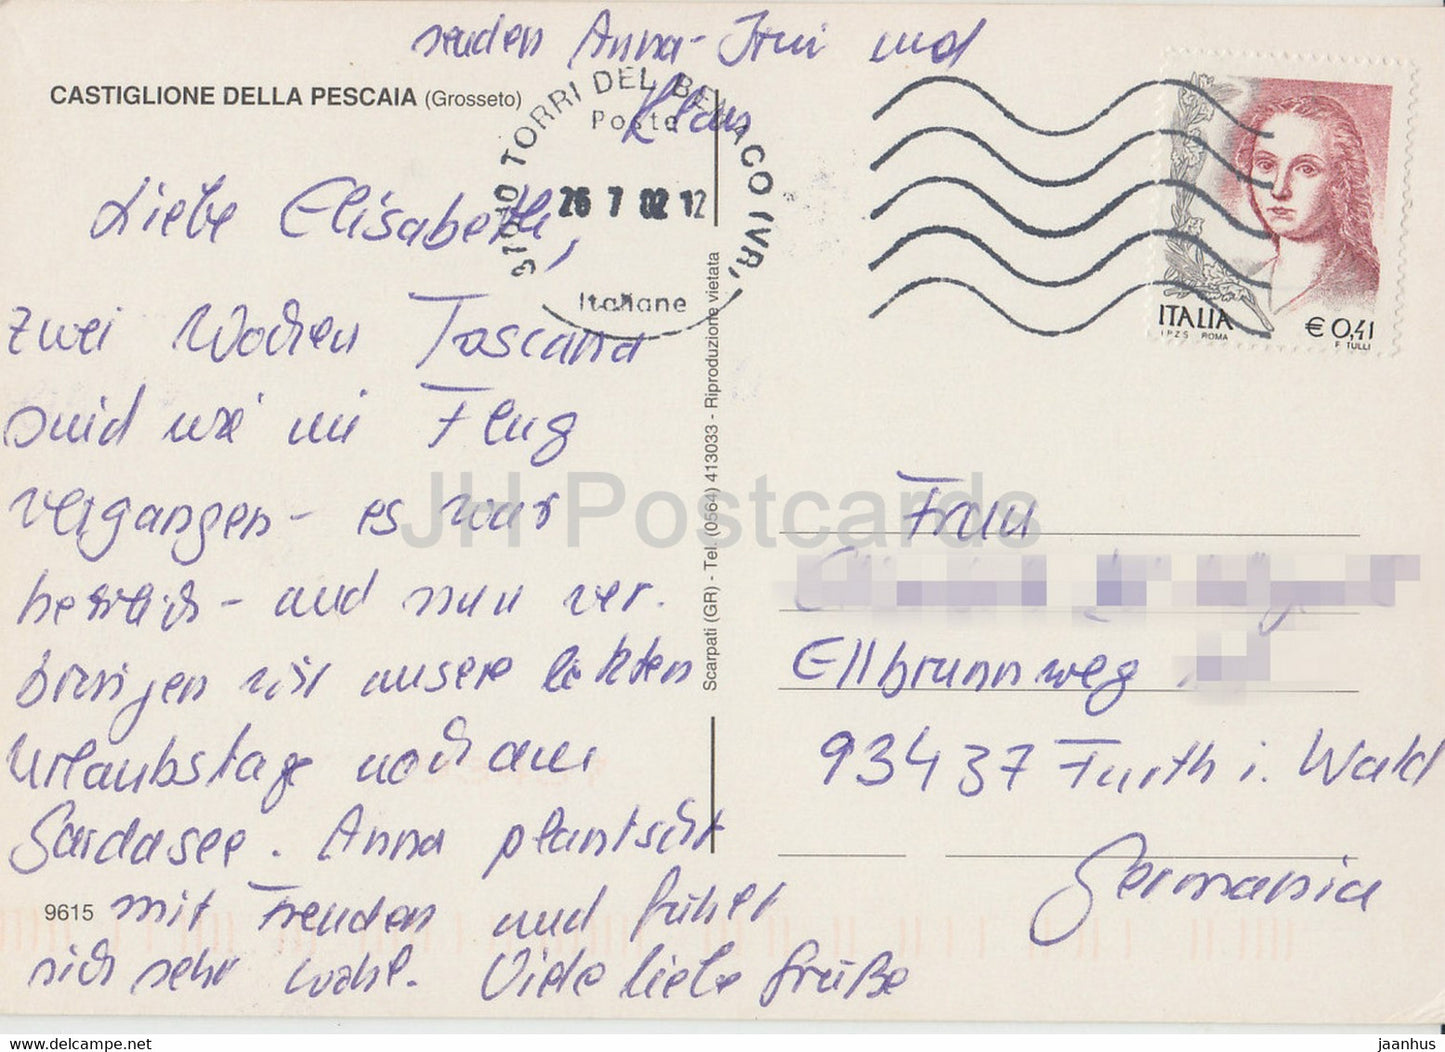 senden Anna- und
Klaus
CASTIGLIONE DELLA PESCAIA (Grosseto)
TORRI DEL BENACO (VR)
Poste
26 7 02 12
Italiane
Liebe Elisabeth,
zwei Wochen Toscana
sind wie im Flug
vergangen - es war
herrlich - und nun ver-
bringen wir unsere letzten
Urlaubstage noch am
Gardasee. Anna plantscht
mit Freuden und fühlt
sich sehr wohl. Viele liebe Grüße
9615
Scarpati (GR) - Tel. (0564) 413033 - Riproduzione vietata
ITALIA
I.P.Z.S. ROMA
€ 0,41
F. TULLI
Frau
Ellbrunnweg
93437 Furth i. Wald
Germania
JH Postcards
www.delcampe.net
jaanhus